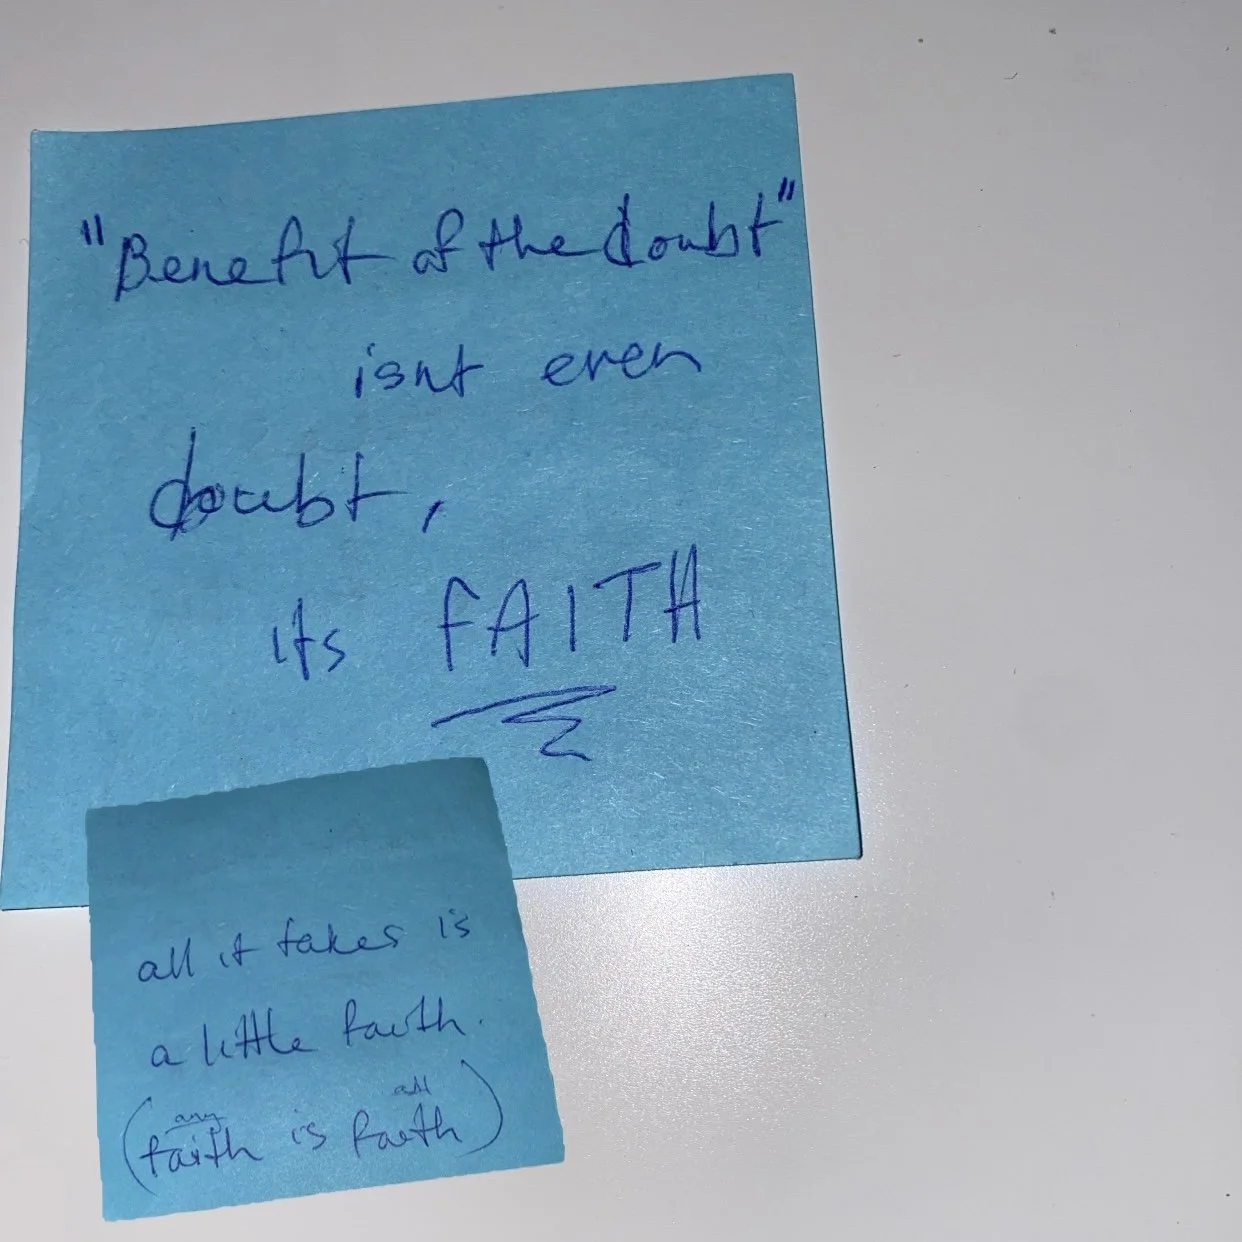 "Benefit of the doubt"
isnt even
doubt,
its FAITH
all it takes is
a little faith.
any all
(faith is faith)